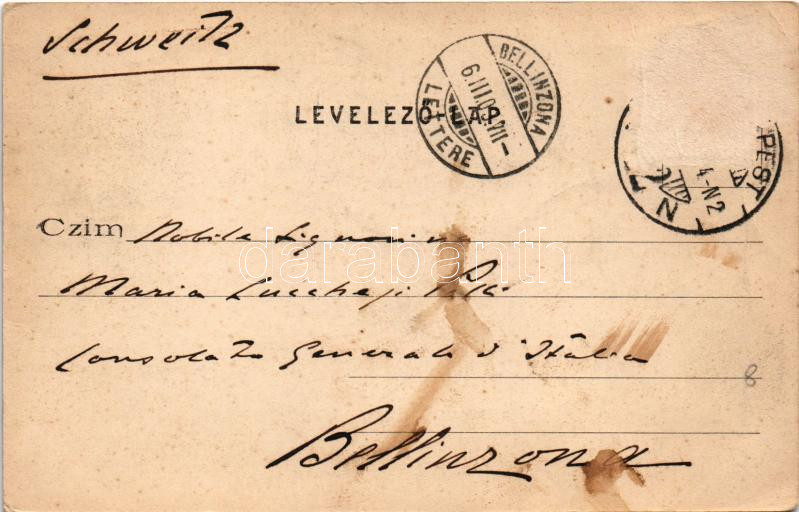 Schweitz
LEVELEZŐ-LAP
BELLINZONA
LETTERE
PEST
Czim Nobile Signorina
Maria Lucchesi
Consolato Generale d'Italia
8
Bellinzona
darabanth